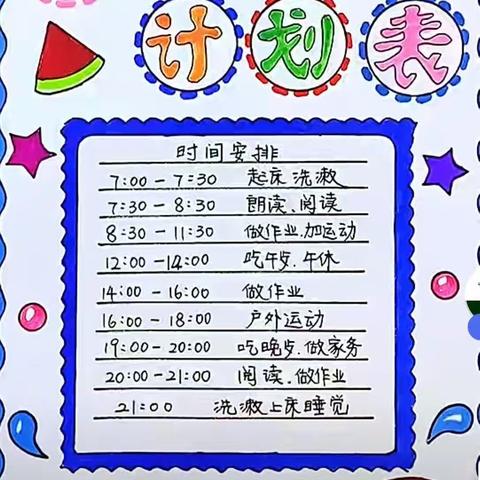 计划表
时间安排
7:00-7:30 起床.洗漱
7:30-8:30 朗读.阅读
8:30-11:30 做作业.加运动
12:00-14:00 吃午歺.午休
14:00-16:00 做作业
16:00-18:00 户外运动
19:00-20:00 吃晚歺.做家务
20:00-21:00 阅读.做作业
21:00 洗漱上床睡觉